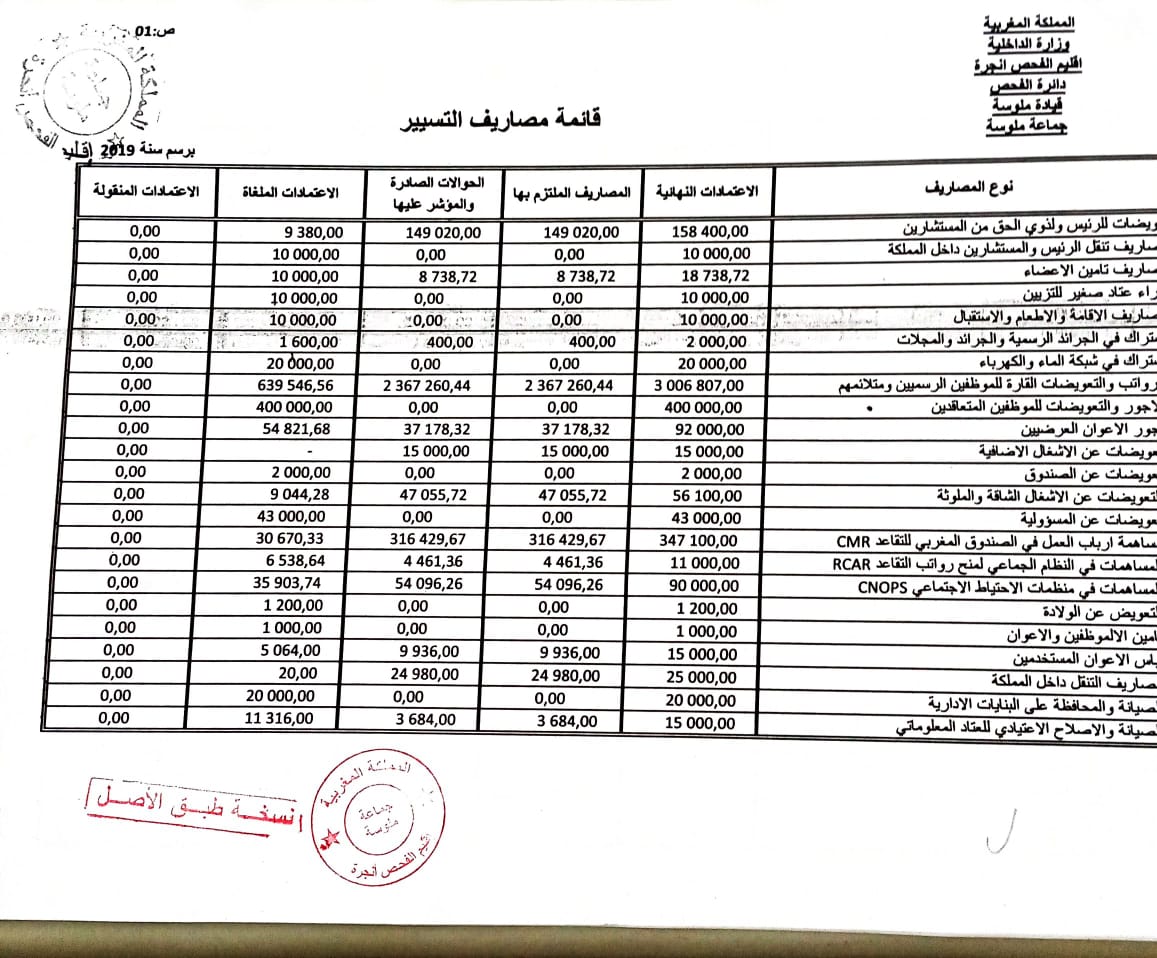 المملكة المغربية
وزارة الداخلية
اقليم الفحص انجرة
دائرة الفحص
قيادة ملوسة
جماعة ملوسة
ص:01
قائمة مصاريف التسيير
برسم سنة 2019
نوع المصاريف الاعتمادات النهائية المصاريف الملتزم بها الحوالات الصادرة والمؤشر عليها الاعتمادات الملغاة الاعتمادات المنقولة
ويضات للرئيس ولذوي الحق من المستشارين 158 400,00 149 020,00 149 020,00 9 380,00 0,00
صاريف تنقل الرئيس والمستشارين داخل المملكة 10 000,00 0,00 0,00 10 000,00 0,00
صاريف تامين الاعضاء 18 738,72 8 738,72 8 738,72 10 000,00 0,00
راء عتاد صغير للتزيين 10 000,00 0,00 0,00 10 000,00 0,00
صاريف الاقامة والاطعام والاستقبال 10 000,00 0,00 0,00 10 000,00 0,00
تراك في الجرائد الرسمية والجرائد والمجلات 2 000,00 400,00 400,00 1 600,00 0,00
تراك في شبكة الماء والكهرباء 20 000,00 0,00 0,00 20 000,00 0,00
رواتب والتعويضات القارة للموظفين الرسميين ومتلائمهم 3 006 807,00 2 367 260,44 2 367 260,44 639 546,56 0,00
لاجور والتعويضات للموظفين المتعاقدين 400 000,00 0,00 0,00 400 000,00 0,00
جور الاعوان العرضيين 92 000,00 37 178,32 37 178,32 54 821,68 0,00
عويضات عن الاشغال الاضافية 15 000,00 15 000,00 15 000,00 - 0,00
عويضات عن الصندوق 2 000,00 0,00 0,00 2 000,00 0,00
لتعويضات عن الاشغال الشاقة والملوثة 56 100,00 47 055,72 47 055,72 9 044,28 0,00
عويضات عن المسؤولية 43 000,00 0,00 0,00 43 000,00 0,00
ساهمة ارباب العمل في الصندوق المغربي للتقاعد CMR 347 100,00 316 429,67 316 429,67 30 670,33 0,00
لمساهمات في النظام الجماعي لمنح رواتب التقاعد RCAR 11 000,00 4 461,36 4 461,36 6 538,64 0,00
لمساهمات في منظمات الاحتياط الاجتماعي CNOPS 90 000,00 54 096,26 54 096,26 35 903,74 0,00
لتعويض عن الولادة 1 200,00 0,00 0,00 1 200,00 0,00
امين الالموظفين والاعوان 1 000,00 0,00 0,00 1 000,00 0,00
باس الاعوان المستخدمين 15 000,00 9 936,00 9 936,00 5 064,00 0,00
صاريف التنقل داخل المملكة 25 000,00 24 980,00 24 980,00 20,00 0,00
لصيانة والمحافظة على البنايات الادارية 20 000,00 0,00 0,00 20 000,00 0,00
لصيانة والاصلاح الاعتيادي للعتاد المعلوماتي 15 000,00 3 684,00 3 684,00 11 316,00 0,00
المملكة المغربية
جماعة
ملوسة
اقليم الفحص أنجرة
نسخة طبق الأصل